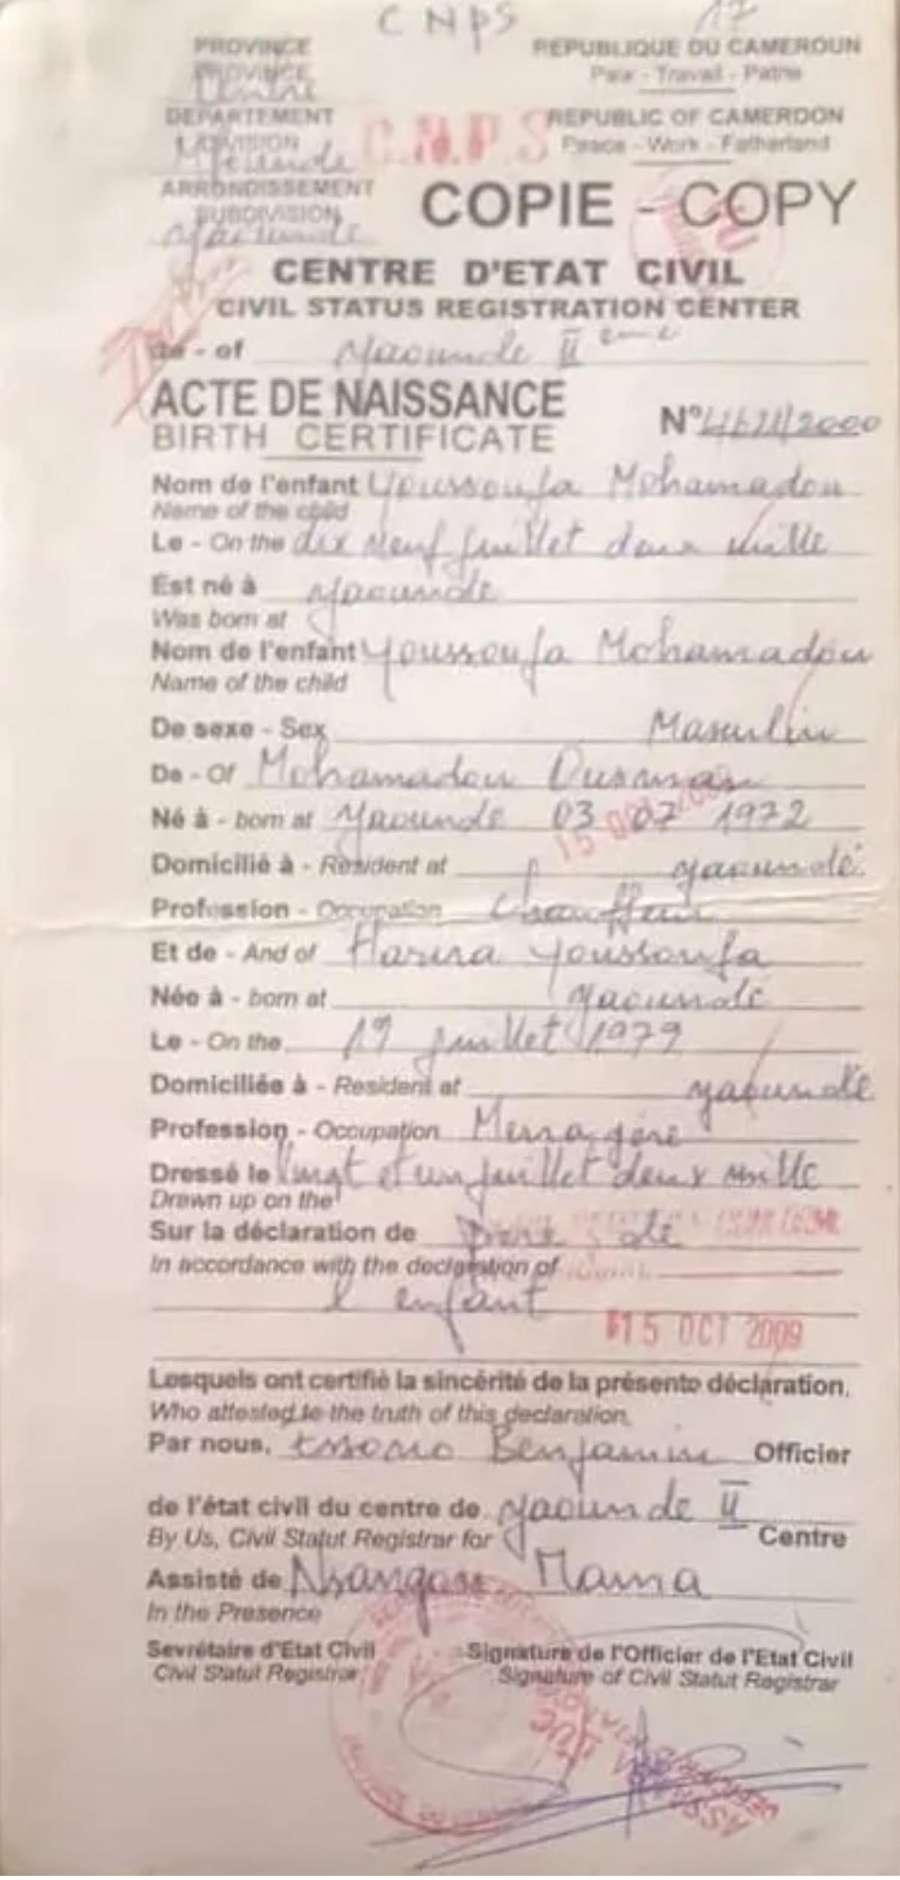 CNPS 17
PROVINCE
PROVINCE
Centre
REPUBLIQUE DU CAMEROUN
Paix - Travail - Patrie
DEPARTEMENT
DIVISION
Mfoundi
C.N.P.S
REPUBLIC OF CAMEROON
Peace - Work - Fatherland
ARRONDISSEMENT
SUBDIVISION
Yaounde
COPIE - COPY
CENTRE D'ETAT CIVIL
CIVIL STATUS REGISTRATION CENTER
de - of Yaounde II eme
ACTE DE NAISSANCE
BIRTH CERTIFICATE
N° /2000
Nom de l'enfant Youssoufa Mohamadou
Name of the child
Le - On the dix neuf juillet deux mille
Est né à Yaounde
Was born at
Nom de l'enfant Youssoufa Mohamadou
Name of the child
De sexe - Sex Masculin
De - Of Mohamadou Ousman
Né à - born at Yaounde 03 07 1972
Domicilié à - Resident at Yaoundé
Profession - Occupation Chauffeur
Et de - And of Youssoufa
Née à - born at Yaoundé
Le - On the 19 juillet 1979
Domiciliée à - Resident at Yaoundé
Profession - Occupation Menagère
Dressé le Vingt et un juillet deux mille
Drawn up on the
Sur la déclaration de
In accordance with the declaration of
l'enfant
15 OCT 2009
Lesquels ont certifié la sincérité de la présente déclaration.
Who attested to the truth of this declaration.
Par nous, Essono Benjamin Officier
de l'état civil du centre de Yaounde II
By Us, Civil Statut Registrar for Centre
Assisté de Mama
In the Presence
Sevrétaire d'Etat Civil
Civil Statut Registrar
Signature de l'Officier de l'Etat Civil
Signature of Civil Statut Registrar